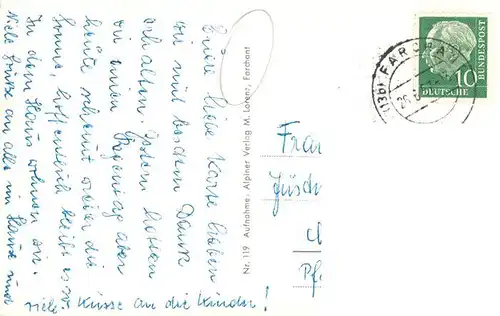 Eure liebe Karte haben
wir mit bestem Dank
erhalten. Ostern hatten
wir einen Regentag aber
heute scheint wieder die
Sonne, hoffentlich bleibt es so.
In dem Haus wohnen wir.
Viele Grüsse an alle im Hause und
viele Küsse an die Kinder!
Nr. 119 Aufnahme: Alpiner Verlag M. Lorenz, Farchant
DEUTSCHE
BUNDESPOST
10
(13b) FARCHANT
Frau
Pf